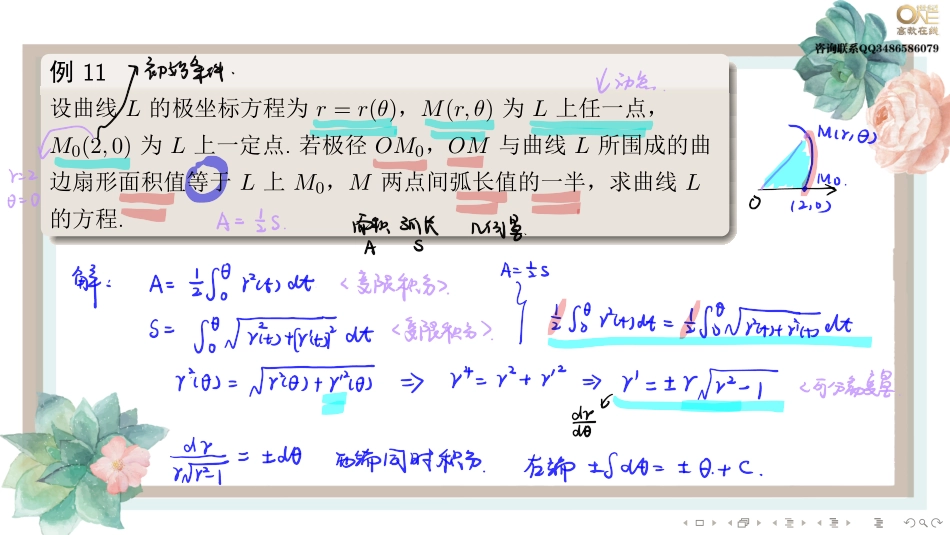 ONE
高教在线
咨询联系QQ3486586079
例 11 初始条件.
动点
设曲线 L 的极坐标方程为 r = r(θ)，M(r, θ) 为 L 上任一点，
M₀(2, 0) 为 L 上一定点. 若极径 OM₀，OM 与曲线 L 所围成的曲
边扇形面积值等于 L 上 M₀，M 两点间弧长值的一半，求曲线 L
的方程.
r=2
θ=0
A = ½S.
面积 弧长 几何量.
A S
M(r,θ)
M₀.
O (2,0)
解: A = ½∫₀^θ r²(t) dt <变限积分>.
S = ∫₀^θ √(r²(t)+[r'(t)]²) dt <变限积分>.
A=½S
½∫₀^θ r²(t)dt = ½∫₀^θ √(r²(t)+r'²(t)) dt
r²(θ) = √(r²(θ)+r'²(θ)) ⇒ r⁴ = r² + r'² ⇒ r' = ± r√(r²-1) <可分离变量
dr/dθ
dr/(r√(r²-1)) = ±dθ 两端同时积分. 右端 ±∫dθ = ±θ+C.